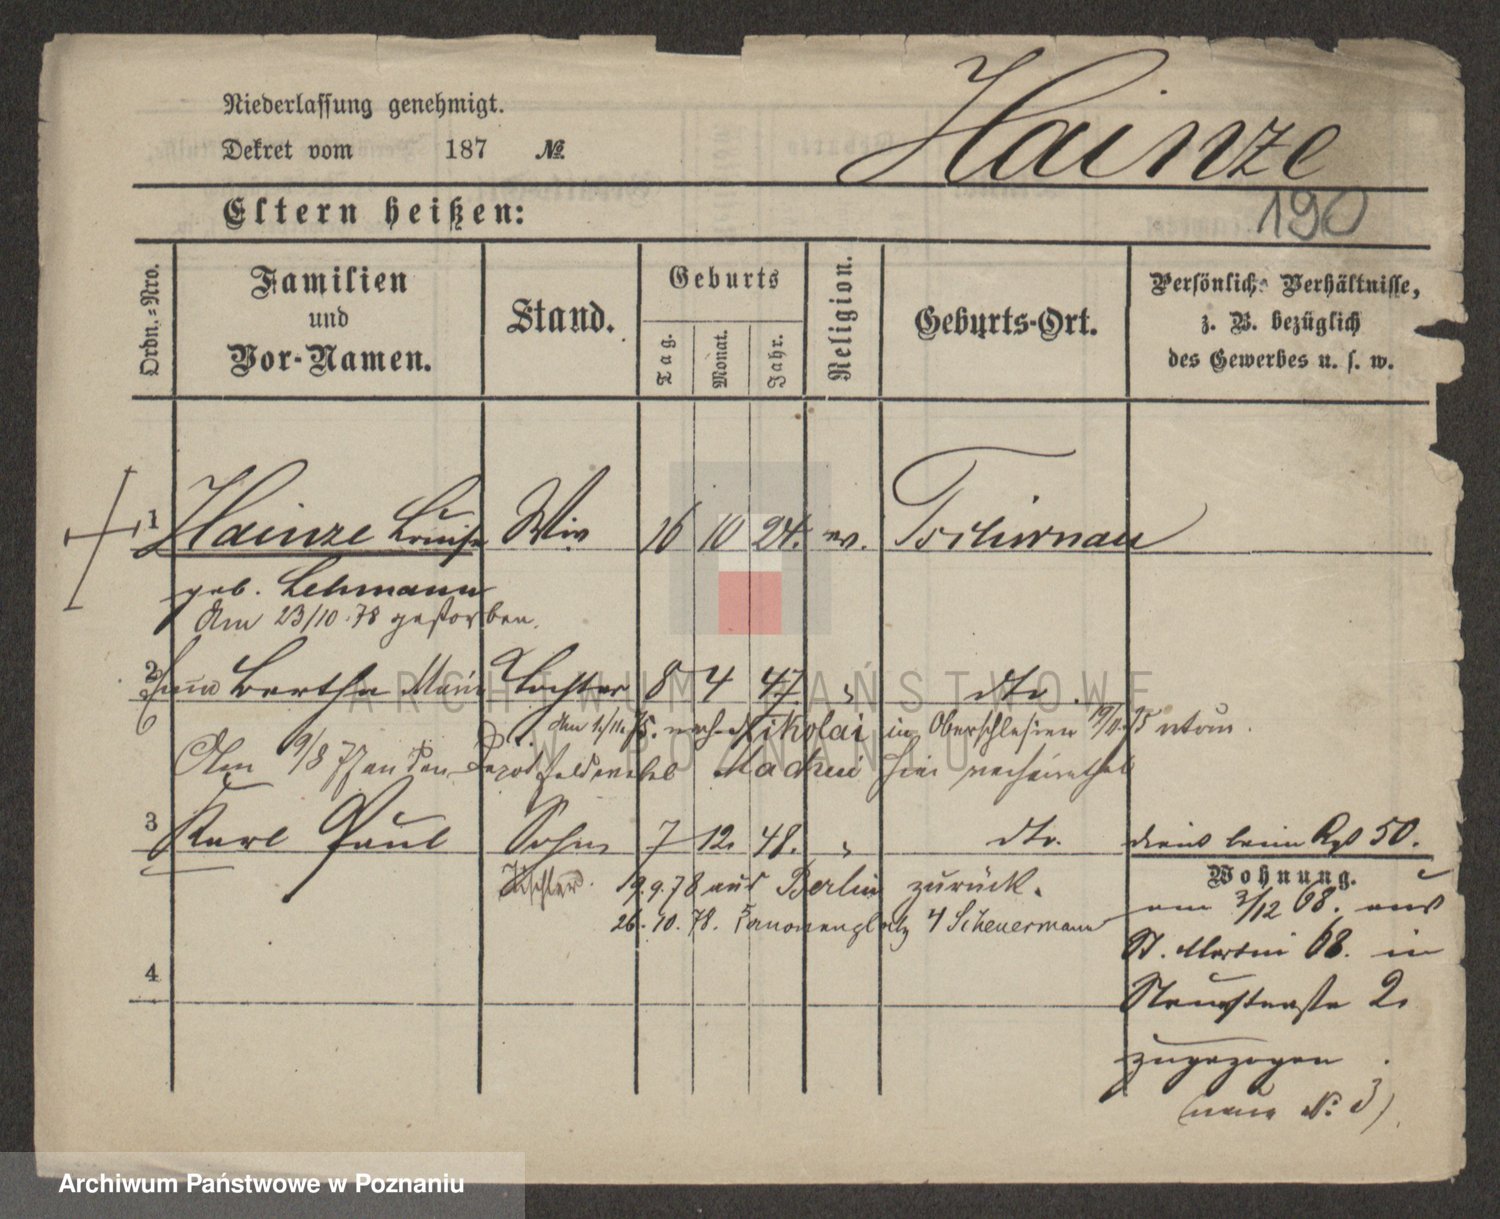 Hainze
Niederlassung genehmigt.
Dekret vom 187 №
190
Eltern heißen:
Ordn.-Nro.
Familien
und
Vor-Namen.
Stand.
Geburts
Tag.
Monat.
Jahr.
Religion.
Geburts-Ort.
Persönliche Verhältnisse,
z. B. bezüglich
des Gewerbes u. s. w.
1 Hainze Louise Ww 16 10 24. ev. Tschirnau
geb. Lehmann
Am 23/10.78 gestorben.
2 Bertha Marie Tochter 8 4 47. " dto.
Am 1./11. 75. nach Nikolai in Oberschlesien 19/11.75 retour.
Am 9/8 77 an den Feldwebel hier verheirathet
3 Karl Paul Sohn 7 12. 48. " dto. dient beim Rgt 50.
Tischler. 19.9.78 aus Berlin zurück.
26.10.78. Kanonenplatz 4 Scheuermann
Wohnung.
am 3/12 68. aus
St. Martin 68. in
2.
zugezogen.
(neue N: 3)
4
ARCHIWUM PAŃSTWOWE
W POZNANIU
Archiwum Państwowe w Poznaniu